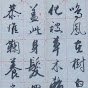 鳴鳳在樹白
化被草木
蓋此身髮
恭惟鞠養